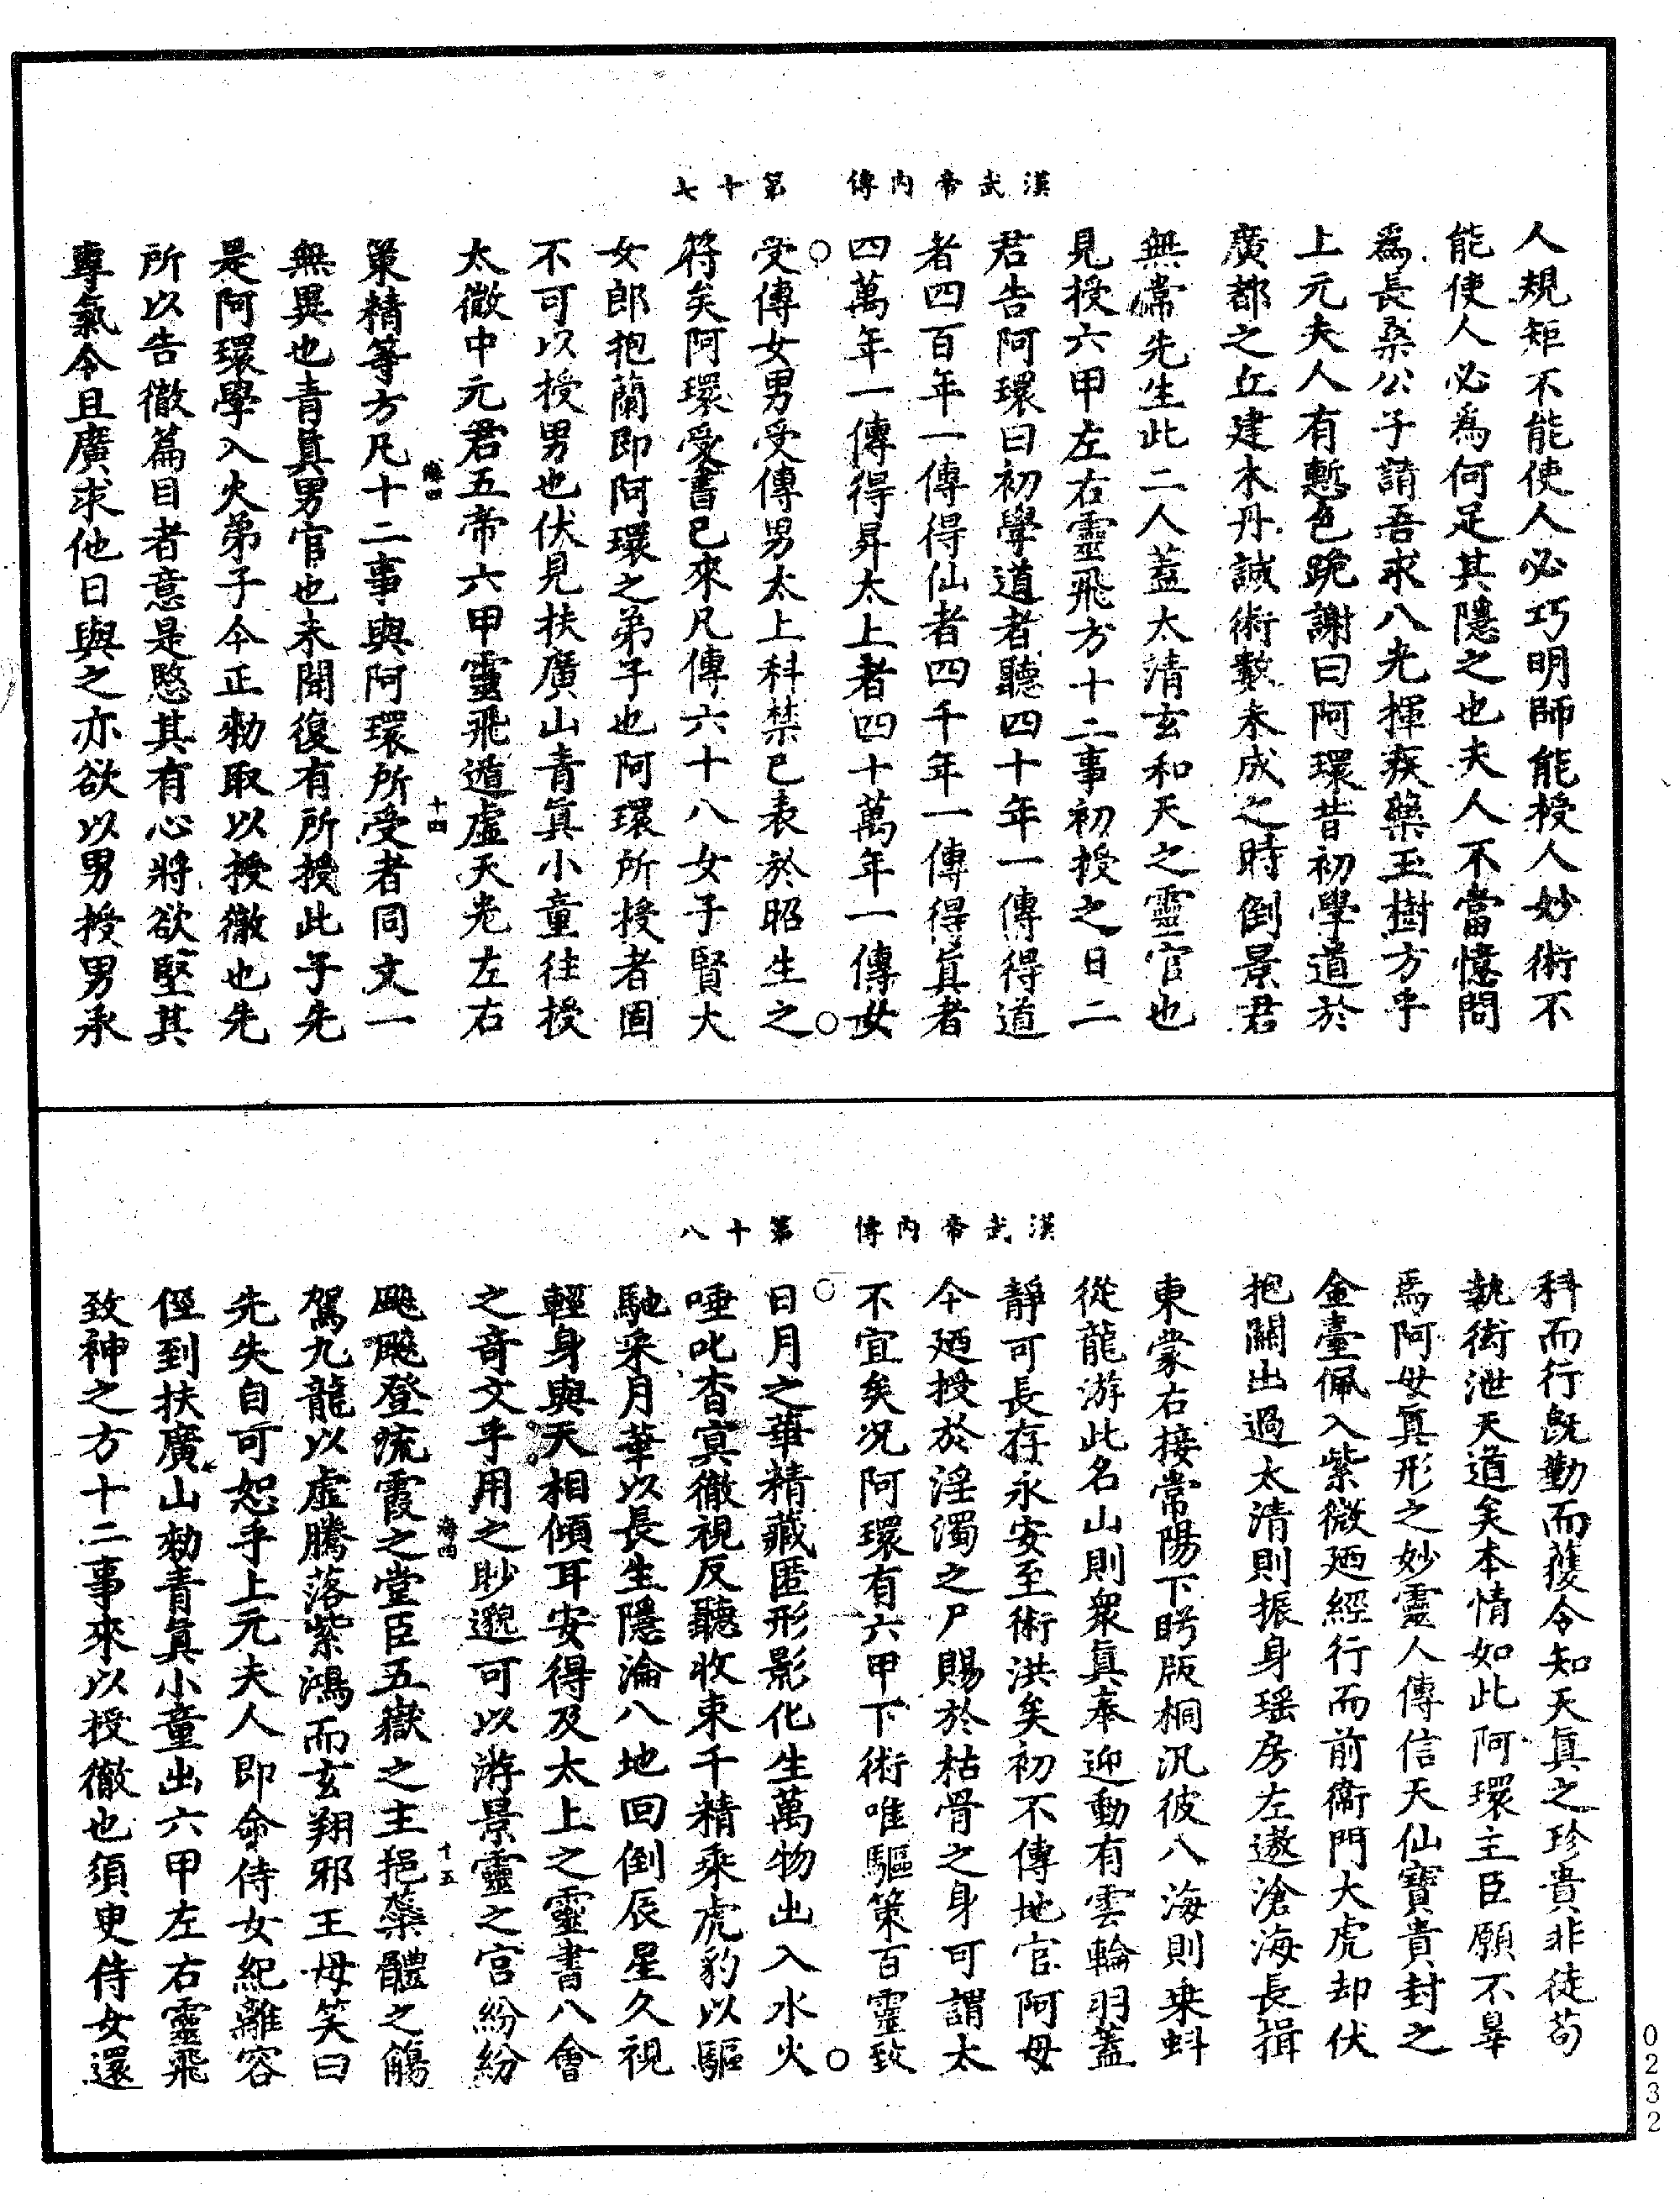 漢武帝內傳 第十七
人規矩不能使人必巧明師能授人妙術不
能使人必為何足其隱之也夫人不當憶問
為長桑公子請吾求八光揮疾藥玉樹方乎
上元夫人有慙色跪謝曰阿環昔初學道於
廣都之丘建木丹誠術數未成之時倒景君
無常先生此二人蓋太清玄和天之靈官也
見授六甲左右靈飛方十二事初授之日二
君告阿環曰初學道者聽四十年一傳得道
者四百年一傳得仙者四千年一傳得真者
四萬年一傳得昇太上者四十萬年一傳女
受傳女男受傳男太上科禁已表於昭生之
符矣阿環受書已來凡傳六十八女子賢大
女郎抱蘭即阿環之弟子也阿環所授者固
不可以授男也伏見扶廣山青真小童往授
太微中元君五帝六甲靈飛遁虛天光左右
策精等方凡十二事與阿環所受者同文一
海四
十四
無異也青真男官也未聞復有所授此乎先
是阿環學入火弟子今正勑取以授徹也先
所以告徹篇目者意是愍其有心將欲堅其
專氣令且廣求他日與之亦欲以男授男承
漢武帝內傳 第十八
科而行既勤而獲令知天真之珍貴非徒苟
執衒泄天道矣本情如此阿環主臣願不辠
焉阿母真形之妙靈人傳信天仙寶貴封之
金臺佩入紫微廼經行而前衞門大虎却伏
抱關出過太清則振身瑶房左遨滄海長揖
東蒙右接常陽下眄版桐汎彼八海則乗蚪
從龍游此名山則衆真奉迎動有雲輪羽蓋
靜可長存永安至術洪矣初不傳地官阿母
今廼授於淫濁之尸賜於枯骨之身可謂太
不宜矣况阿環有六甲下術唯驅策百靈致
日月之華精藏匿形影化生萬物出入水火
唾叱杳冥徹視反聽收束千精乘虎豹以驅
馳采月華以長生隱淪八地回倒辰星久視
輕身與天相傾耳安得及太上之靈書八會
之奇文乎用之眇邈可以游景靈之宮紛紛
飈飈登流霞之堂臣五嶽之主挹蘂體之觴
海四
十五
駕九龍以虛騰落紫鴻而玄翔邪王母笑曰
先失自可恕乎上元夫人即命侍女紀離容
徑到扶廣山勑青真小童出六甲左右靈飛
致神之方十二事來以授徹也須臾侍女還
0232